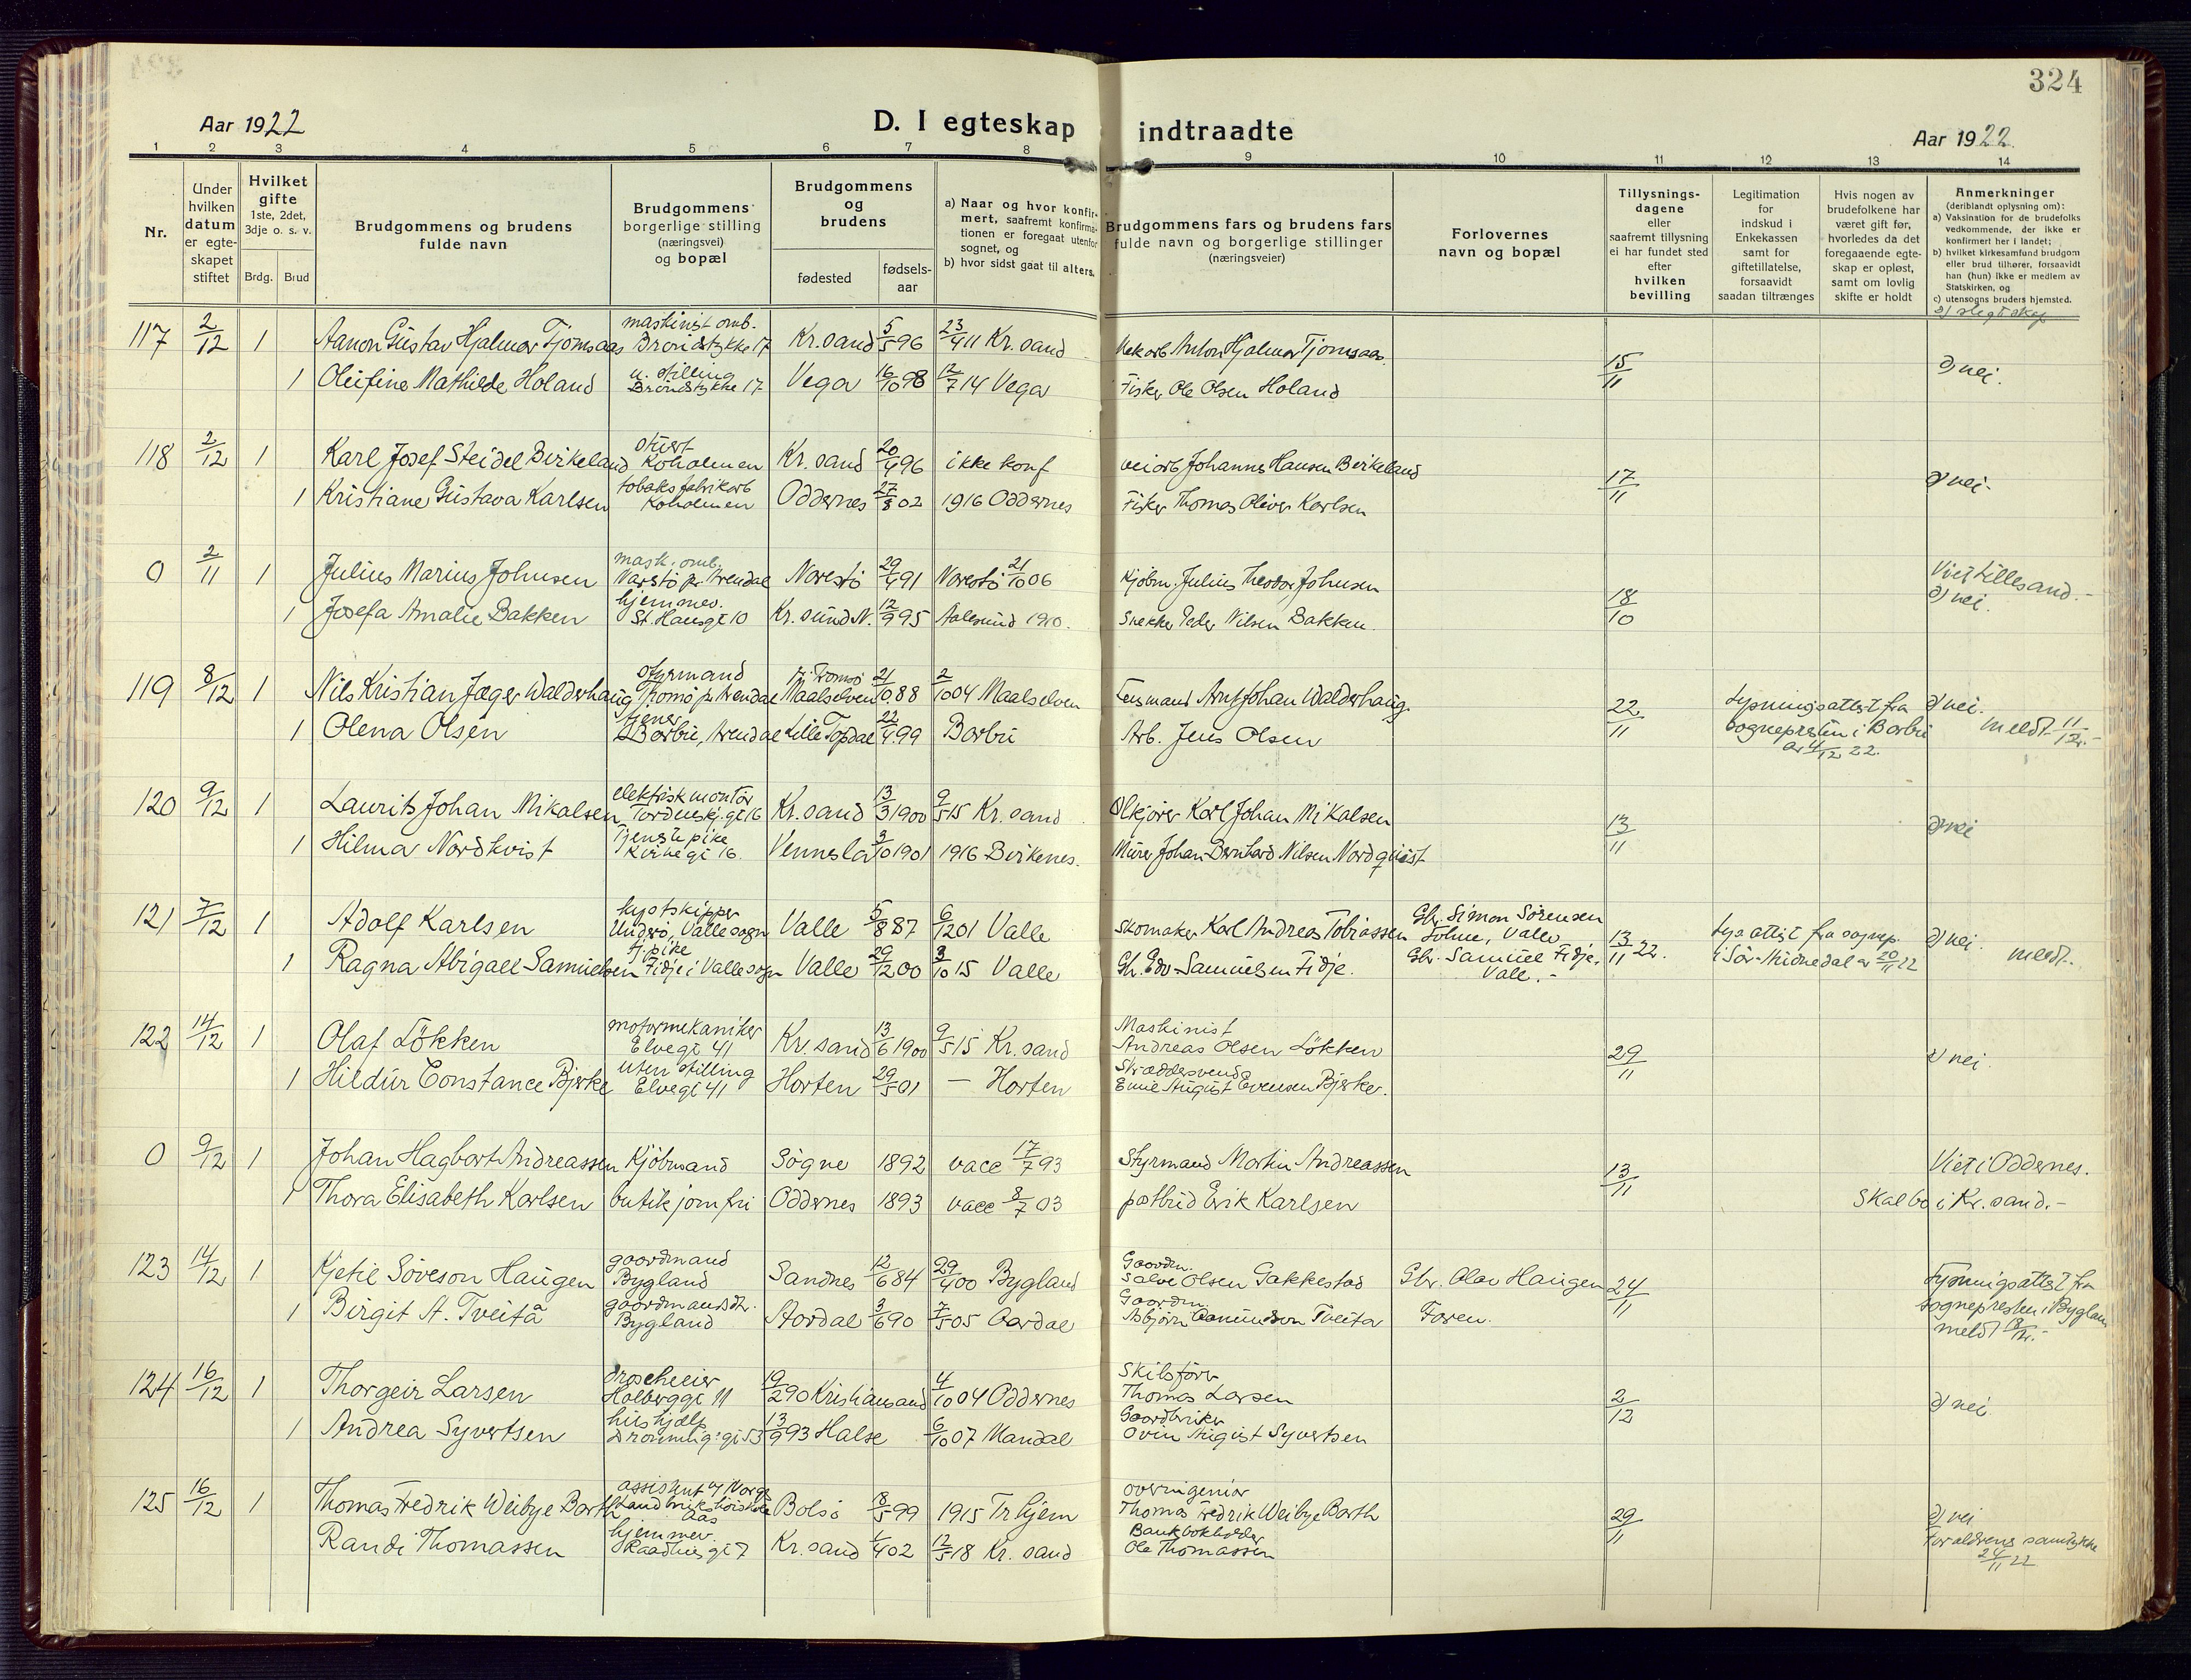 324
Aar 1922
D. I egteskap indtraadte
Aar 1922.
1 2 3 4 5 6 7 8 9 10 11 12 13 14
Nr.
Under hvilken datum er egte-skapet stiftet
Hvilket gifte
1ste, 2det, 3dje o. s. v.
Brdg. Brud
Brudgommens og brudens fulde navn
Brudgommens borgerlige stilling (næringsvei) og bopæl
Brudgommens og brudens
fødested
fødsels-aar
a) Naar og hvor konfir-mert, saafremt konfirma-tionen er foregaat utenfor sognet, og
b) hvor sidst gaat til alters.
Brudgommens fars og brudens fars fulde navn og borgerlige stillinger (næringsveier)
Forlovernes navn og bopæl
Tillysnings-dagene eller saafremt tillysning ei har fundet sted efter hvilken bevilling
Legitimation for indskud i Enkekassen samt for giftetillatelse, forsaavidt saadan tiltrænges
Hvis nogen av brudefolkene har været gift før, hvorledes da det foregaaende egte-skap er opløst, samt om lovlig skifte er holdt
Anmerkninger
(deriblandt oplysning om):
a) Vaksination for de brudefolks vedkommende, der ikke er konfirmert her i landet;
b) hvilket kirkesamfund brudgom eller brud tilhører, forsaavidt han (hun) ikke er medlem av Statskirken, og
c) utensogns bruders hjemsted.
d) slegtskap
117 2/12 1 Aanon Gustav Hjalmar Tjomsaas maskinist omb. Brøndstykke 17 Kr.sand 5/5 96 23/4 11 Kr. sand Mek arb Anton Hjalmar Tjomsaas 15/11 d) nei.
1 Oleifine Mathilde Holand u. stilling Brøndstykke 17 Vega 16/10 98 12/7 14 Vega Fisker Ole Olsen Holand
118 2/12 1 Karl Josef Steidel Birkeland stuert Koholmen Kr. sand 20/4 96 ikke konf veiarb Johannes Hansen Berkeland 17/11 d) nei.
1 Kristiane Gustava Karlsen tobaksfabrikarb Koholmen Oddernes 27/8 02 1916 Oddernes Fisker Thomas Oliver Karlsen
0 2/11 1 Julius Marius Johnsen mask. omb. Narestö pr. Arendal Narestö 29/4 91 Narestö 21/10 06 Kjöbm. Julius Theodor Johnsen 18/10 Viet Lillesand. d) nei.
1 Josefa Amalie Bakken hjemmev. St. Hansgt 10 Kr. sund N. 12/9 95 Aalesund 1910. Snekker Peder Nilsen Bakken.
119 8/12 1 Nils Kristian Jæger Walderhaug styrmand Tromö pr Arendal pr. Tromsö Maalselven 21/10 88 2/10 04 Maalselven Lensmand Arnt Johan Walderhaug. 22/11 Lysningsattest fra sognepresten i Barbu av 4/12 22. d) nei. meldt 11/12.
1 Olena Olsen tjener Barbu, Arendal Lille Topdal 22/4 99 Barbu Arb. Jens Olsen
120 9/12 1 Laurits Johan Mikalsen elektrisk montör Tordenskj. gt 16 Kr. sand 13/3 1900 9/5 15 Kr. sand Ölkjörer Karl Johan Mikalsen 13/11 d) nei
1 Hilma Nordkvist Tjenestepike Kirkegt 16. Vennesla 3/10 1901 1916 Birkenes. Murer Johan Bernhard Nilsen Nordquist
121 7/12 1 Adolf Karlsen kystskipper Underö, Valle sogn Valle 5/8 87 6/12 01 Valle Skomaker Karl Andreas Tobiassen Gbr. Simon Sörensen Valle 13/11 22. Lys attest fra sognep. i Sör-Audnedal av 20/11 22 d) nei. meldt.
1 Ragna Abigael Samuelsen tj. pike Fidje i Valle sogn Valle 29/12 00 3/10 15 Valle Gbr. Edv. Samuelsen Fidje. Gbr. Samuel Fidje, Valle.
122 14/12 1 Olaf Lökken motormekaniker Elvegt 41 Kr. sand 13/6 1900 9/5 15 Kr. sand Maskinist Andreas Olsen Lökken 29/11 d) nei.
1 Hildur Constance Bjerke uten stilling Elvegt 41 Horten 29/5 01 — Horten Skræddersvend Emil August Evensen Bjerke.
0 9/12 1 Johan Hagbart Andreassen Kjöbmand Sögne 1892 vacc 17/7 93 Styrmand Martin Andreassen 13/11 Viet i Oddernes.
1 Thora Elisabeth Karlsen butikjomfru Oddernes 1893 vacc 8/7 03 postbud Erik Karlsen Skal bo i Kr. sand.
123 14/12 1 Kjetil Söveson Haugen gaardmand Bygland Sandnes 12/6 84 29/4 00 Bygland Gaardm. Salve Olsen Gakkestad Gbr. Olav Haugen 24/11 Lysningsattest fra
1 Birgit A. Tveitå gaardmandsdt. Bygland Aardal 3/6 90 7/5 05 Aardal Gaardm. Asbjörn Aamundson Tveita sognepresten i Bygland meldt 18/12.
124 16/12 1 Thorgeir Larsen droscheeier Holberggt 11 19/2 90 Kristiansand 4/10 04 Oddernes Skibsförer Thomas Larsen 2/12 d) nei.
1 Andrea Syvertsen hushjælp Dronningsgt 53 13/9 93 Halse 6/10 07 Mandal Gaardbruker August Syvertsen
125 16/12 1 Thomas Fredrik Weibye Barth assistent v/ Norges Landbrukshöiskole Aas Bolsö 8/5 99 1915 Tr.hjem overingeniør Thomas Fredrik Weibye Barth 29/11 d) nei
Randi Thomassen hjemmev. Raadhusgt 7 Kr. sand 1/4 02 12/5 18 Kr. sand Bankbokholder Ole Thomassen Foraldrenes samtykke 24/11 22